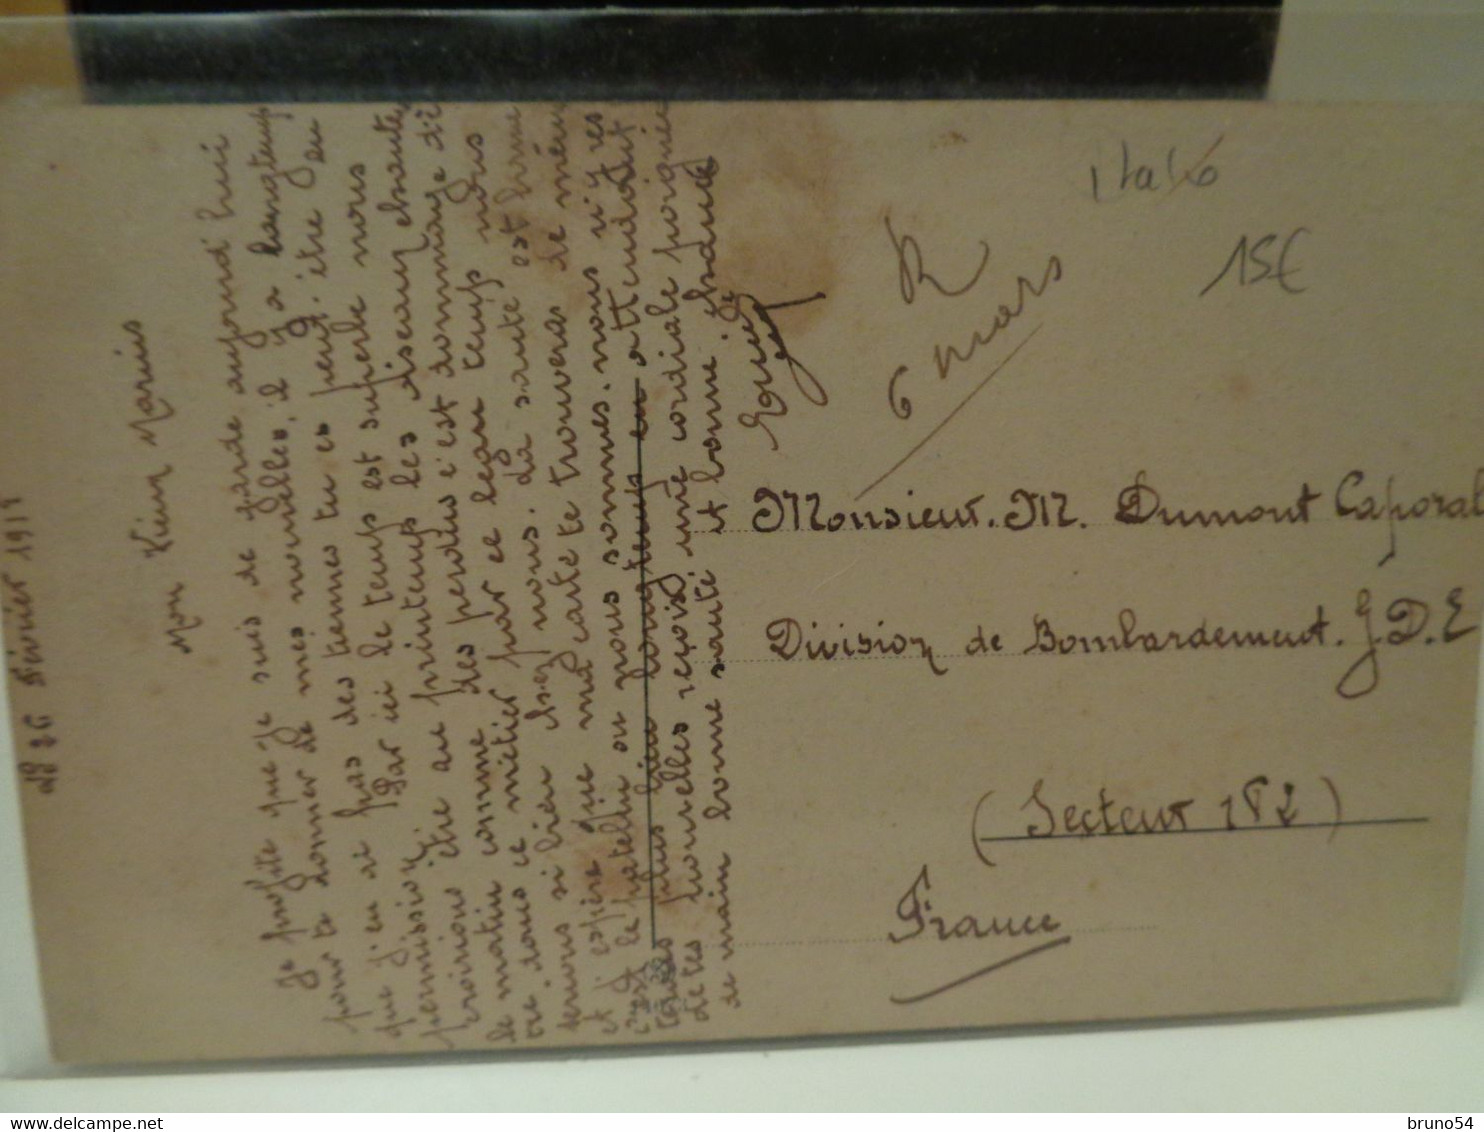 le 26 Février 1919
Mon Vieux Marius
Je profite que je suis de garde aujourd'hui
pour te donner de mes nouvelles, il y a longtemps
que j'en ai pas des tiennes tu es peut-être en
permission, Par ici le temps est superbe nous
croirions être au printemps les oiseaux chante
le matin comme des perdus c'est dommage d'ê
tre dans ce métier par ce beau temps nous
serions si bien chez nous. La santé est bonne
et j'espère que ma carte te trouveras de mêm
le patelin ou nous sommes. nous n'y res
plus bien longtemps en attendant
de tes nouvelles reçois une cordiale poignée
de main bonne santé et bonne chance
Italie
15€
R
6 mars
Monsieur. M. Dumont Caporal
Division de Bombardement. G.D.E
(Secteur 182)
France
bruno54